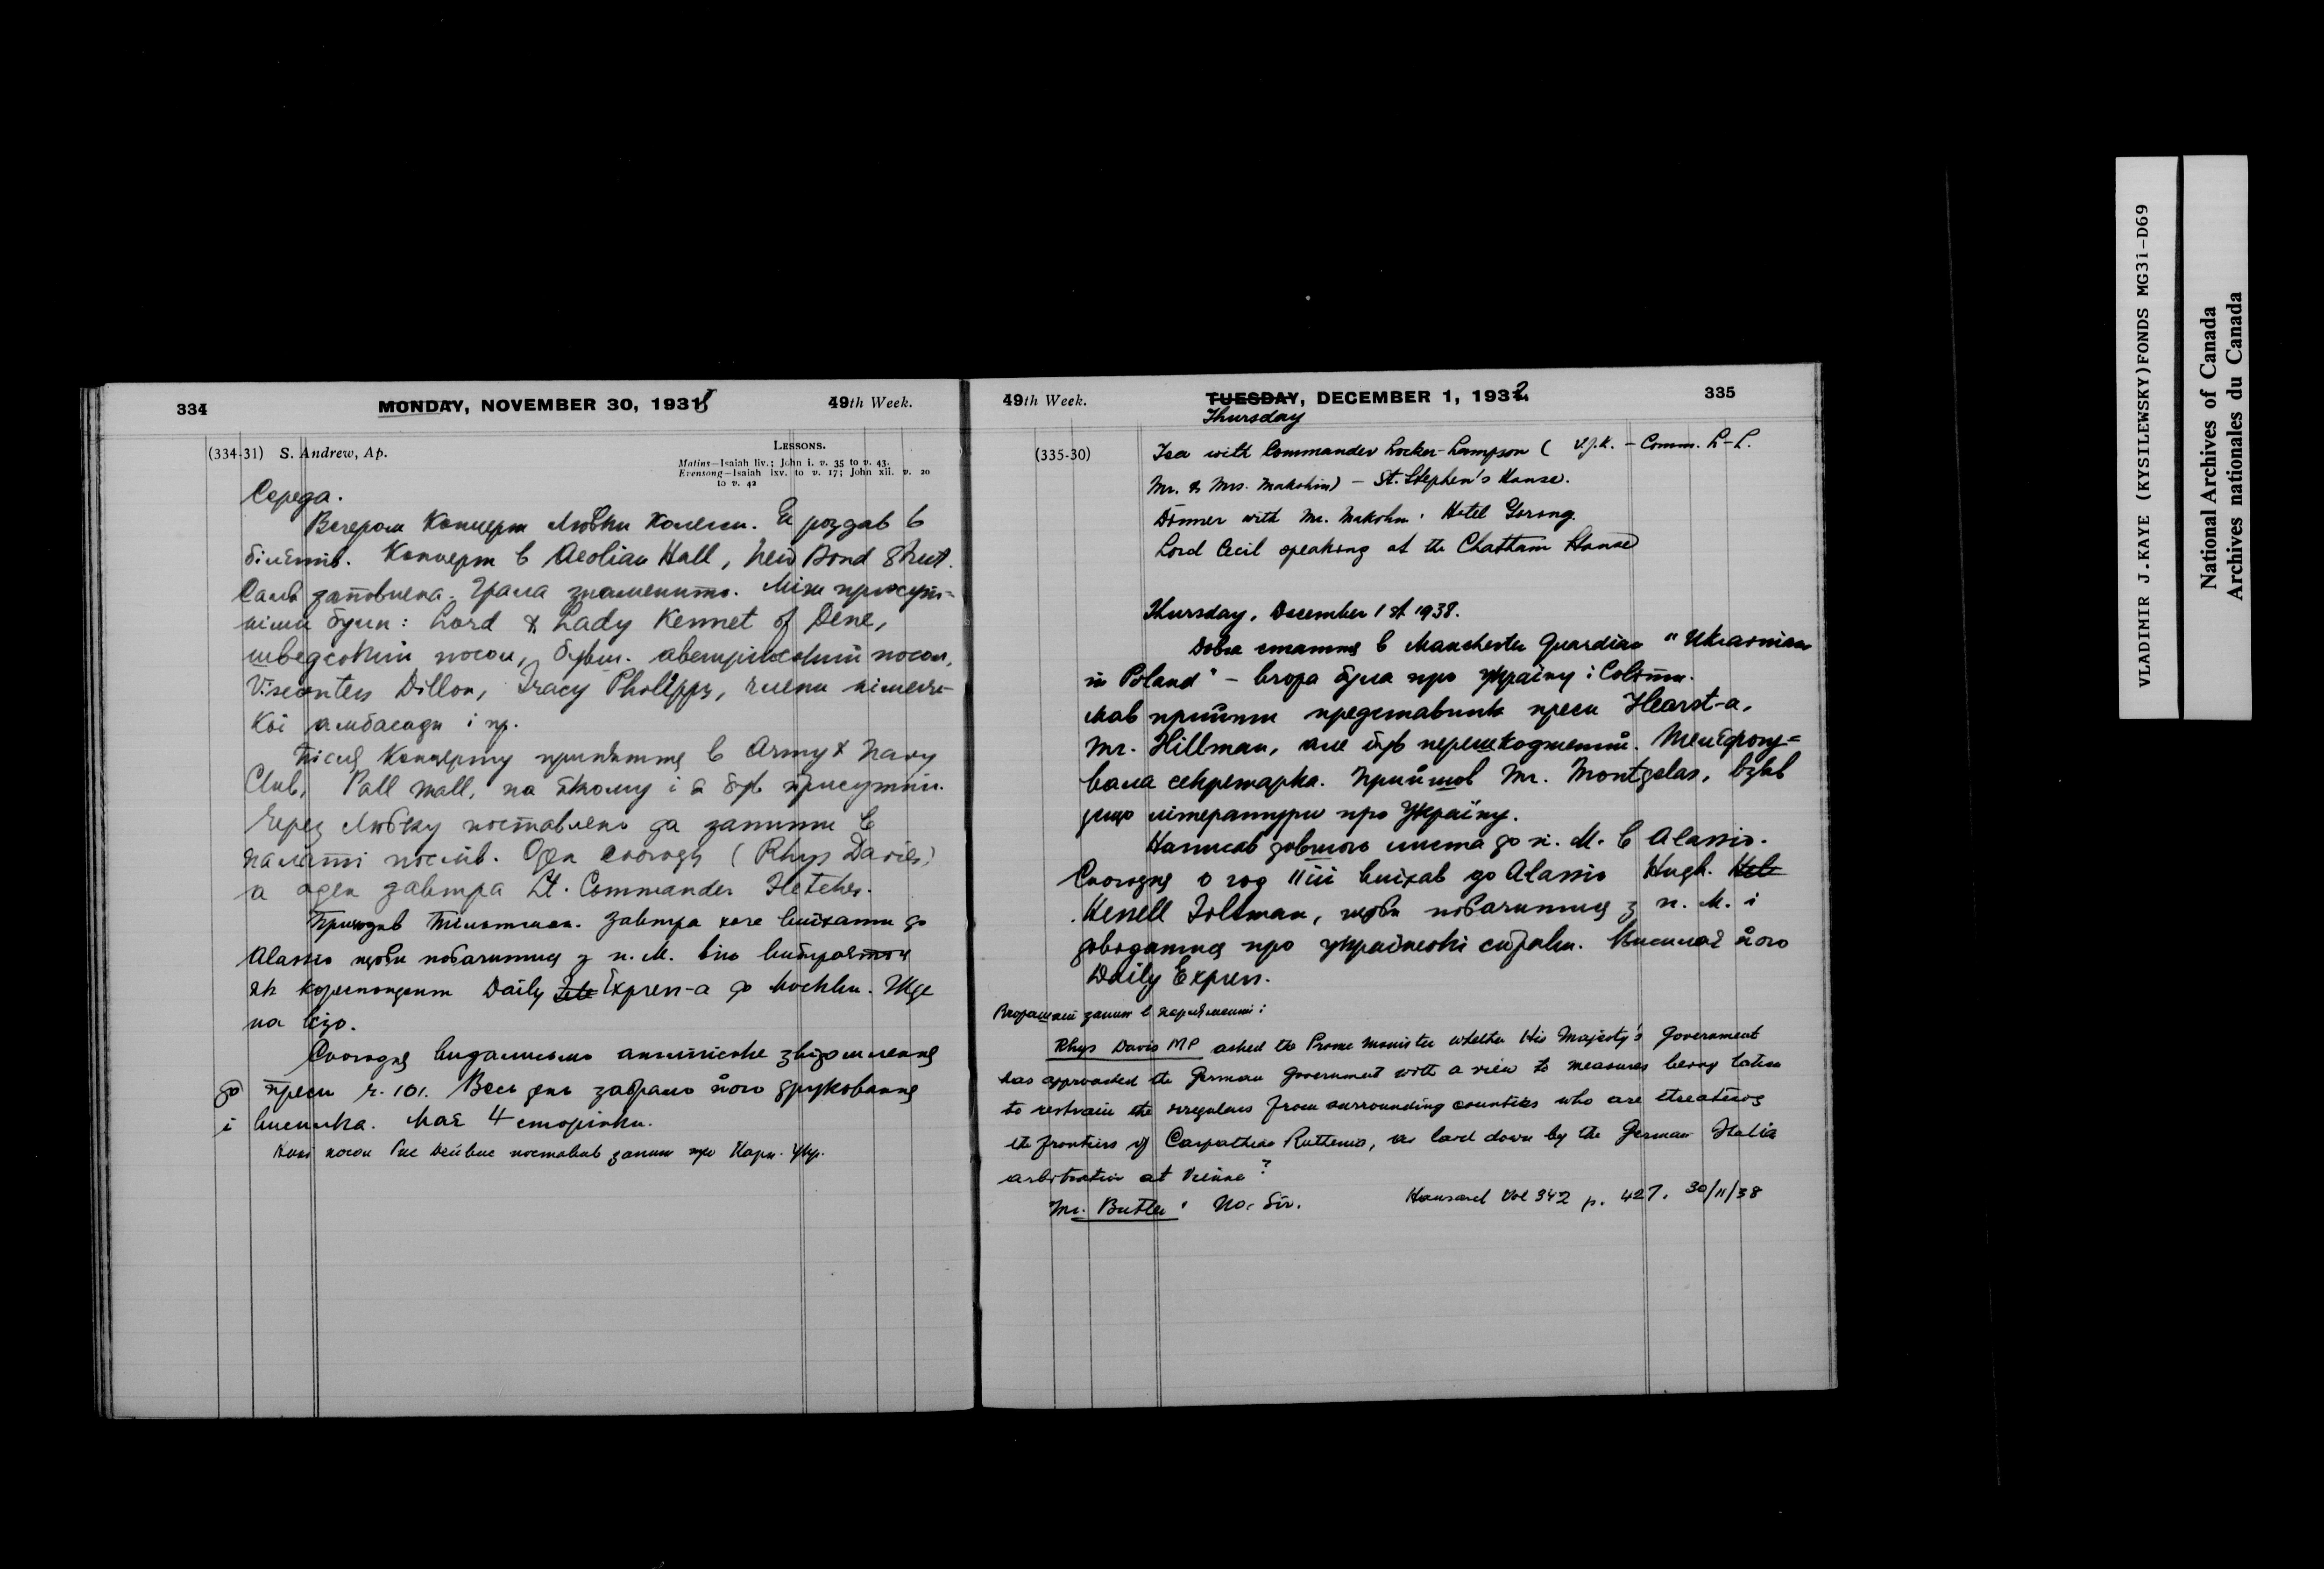 334
MONDAY, NOVEMBER 30, 1938
49th Week.
(334-31) S. Andrew, Ap.
LESSONS.
Matins—Isaiah liv.; John i. v. 35 to v. 43.
Evensong—Isaiah lxv. to v. 17; John xii. v. 20
to v. 42
Середа.
Вечером концерт Любки Колесси. Я роздав 6
білєтів. Концерт в Aeolian Hall, New Bond Street.
Саля заповнена. Грала знаменито. Між присут-
німи були: Lord & Lady Kennet of Dene,
шведський посол, бувш. австрійський посол,
Viscontess Dillon, Tracy Philipps, члени німець-
кої амбасади і пр.
Після концерту приняття в Army & Navy
Club, Pall Mall, на якому і я був присутній.
Через Любку поставлено два запити в
палаті послів. Один сьогодня (Rhys Davies)
а один завтра Lt. Commander Fletcher.
Приходив Тільтман. Завтра хоче виїхати до
Alassio щоби побачитися з п. М. Він вибирається
як кореспондент Daily Tele Express-а до Москви. Жде
на візо.
Сьогодня видалисьмо англійське звідомлення
до преси ч. 101. Весь день забрало його друкованя
і висилка. Має 4 сторінки.
посол Рис Дейвис поставив запит про Карп. Укр.
49th Week.
TUESDAY, DECEMBER 1, 1932
335
Thursday
(335-30)
Tea with Commander Locker-Lampson (V.J.K. – Comm. L-L.
Mr. & Mrs. Makohin) – St. Stephen's House.
Dinner with Mr. Makohin. Hotel Goring.
Lord Cecil speaking at the Chatham House
Thursday, December 1st 1938.
Добра стаття в Manchester Guardian "Ukrainians
in Poland" – вчора була про Україну і Совіти.
Мав прийти представник преси Hearst-а,
Mr. Hillman, але був перешкоджений. Телєфону-
вала секретарка. Прийшов Mr. Montgelas, взяв
дещо літератури про Україну.
Написав довшого листа до п. М. в Alassio.
Сьогодня о год 11ій виїхав до Alassio Hugh. Hele
Hessell Tiltman, щоби побачитися з п. М. і
довідатися про українські справи. Висилає його
Daily Express.
Вчорашний запит в парляменті:
Rhys Davis MP asked the Prime Minister whether His Majesty's Government
has approached the German Government with a view to measures being taken
to restrain the irregulars from surrounding countries who are threatening
the frontiers of Carpathian Ruthenia, as laid down by the German Italia
arbitration at Vienna?
Mr. Butler: No, Sir. Hansard Vol 342 p. 427. 30/11/38
VLADIMIR J.KAYE (KYSILEWSKY)FONDS MG31-D69
National Archives of Canada
Archives nationales du Canada